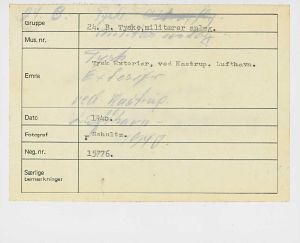 Gruppe 24. B. Tyske militærer anlæg.
Mus.nr.
Tysk
Emne Tysk Exteriør, ved Kastrup. Lufthavn.
Exteriør
ved Kastrup
Lufthavn
Dato 1940.
1940.
Fotograf Schultz.
Neg.nr. 15776.
Særlige
bemærkninger